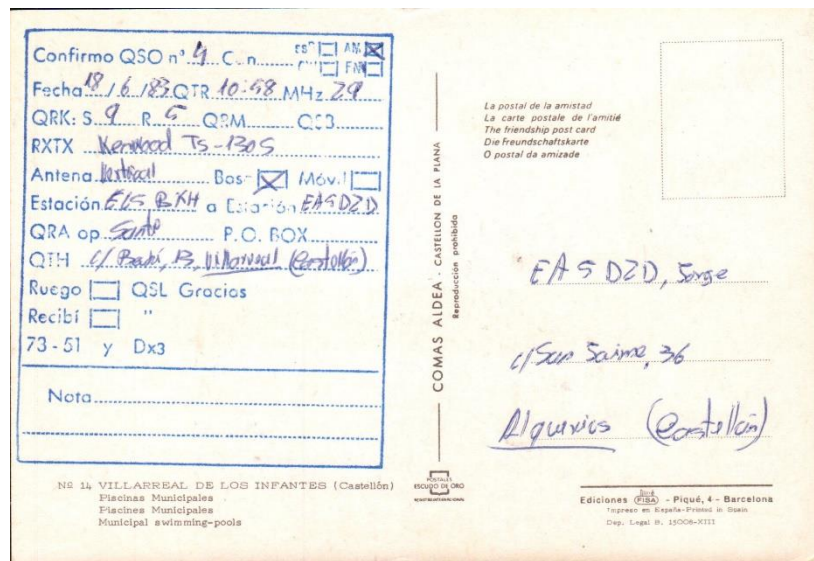 Confirmo QSO nº 4 C.n AM
FM
Fecha 18/6/83 QTR 10:58 MHz 29
QRK: S 9 R 5 QRM QSB
RXTX Kenwood TS-130S
Antena Vertical Base Móvil
Estación BXH a Estación EA5DZD
QRA op. Santi P.O. BOX
QTH c/ Villarreal (Castellón)
Ruego QSL Gracias
Recibí "
73-51 y Dx3
Nota
Nº 14 VILLARREAL DE LOS INFANTES (Castellón)
Piscinas Municipales
Piscines Municipales
Municipal swimming-pools
COMAS ALDEA - CASTELLON DE LA PLANA
Reproducción prohibida
POSTALES
ESCUDO DE ORO
La postal de la amistad
La carte postale de l'amitié
The friendship post card
Die Freundschaftskarte
O postal da amizade
EA5DZD, Jorge
c/ San Jaime, 36
Alquerias (Castellón)
Ediciones FISA - Piqué, 4 - Barcelona
Impreso en España-Printed in Spain
Dep. Legal B. 15008-XIII